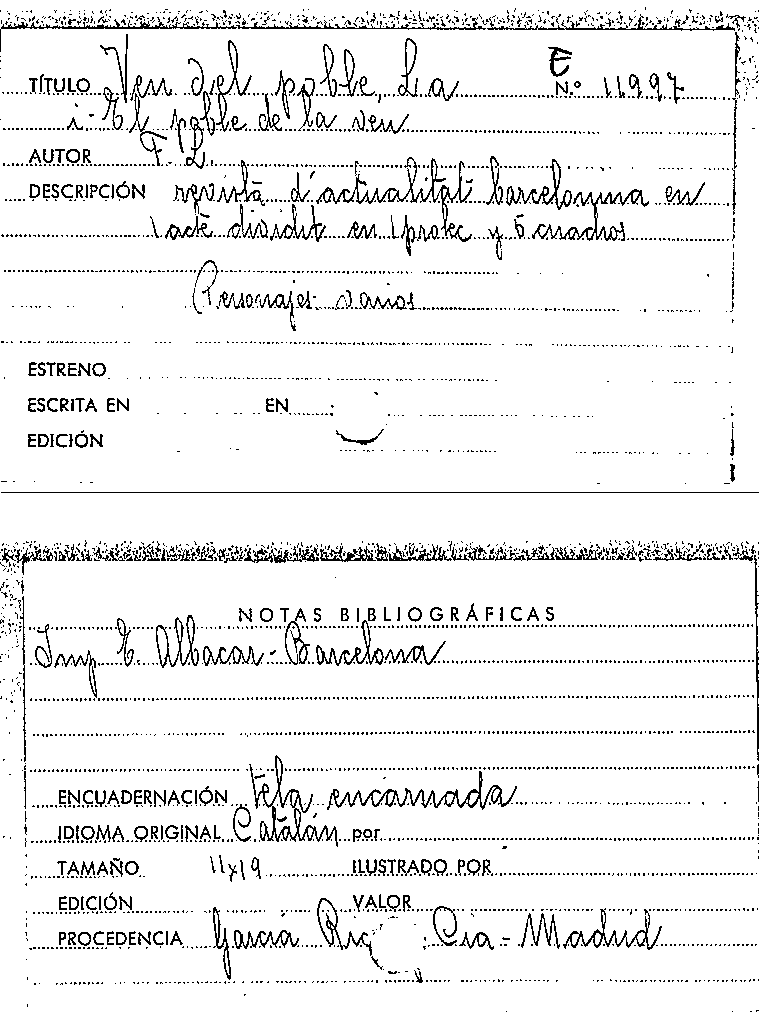 TÍTULO Veu del poble, La E N.º 11997
i-El poble de la veu
AUTOR F. L.
DESCRIPCIÓN revista d'actualitat barcelonina en
1 acte dividit en 1 prolec y 5 cuadros
Personajes varios
ESTRENO
ESCRITA EN EN
EDICIÓN
NOTAS BIBLIOGRÁFICAS
Imp E. Albacar-Barcelona
ENCUADERNACIÓN tela encarnada
IDIOMA ORIGINAL Catalán por
TAMAÑO 11x19 ILUSTRADO POR
EDICIÓN VALOR
PROCEDENCIA García Cia-Madrid